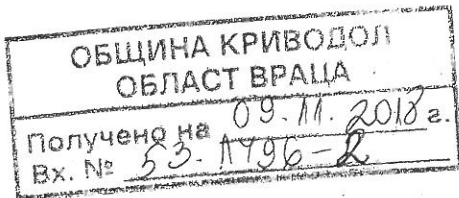 ОБЩИНА КРИВОДОЛ
ОБЛАСТ ВРАЦА
Получено на 09.11.2018 г.
Вх. № 53-1796-2